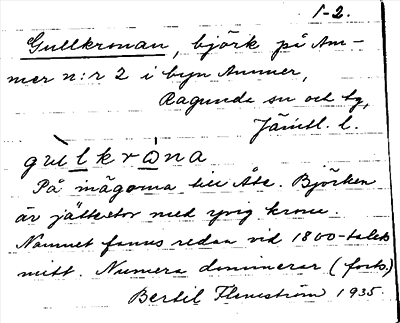 1-2.
Gullkronan, björk på Am-
mer n:r 2 i byn Ammer,
Ragunda sn och tg,
Jämtl. l.
gùllkrò̲na
På mägorna till Åte. Björken
är jättestor med yvig krona.
Namnet fanns redan vid 1800-talets
mitt. Numera dominerar (forts.)
Bertil Flemström 1935.